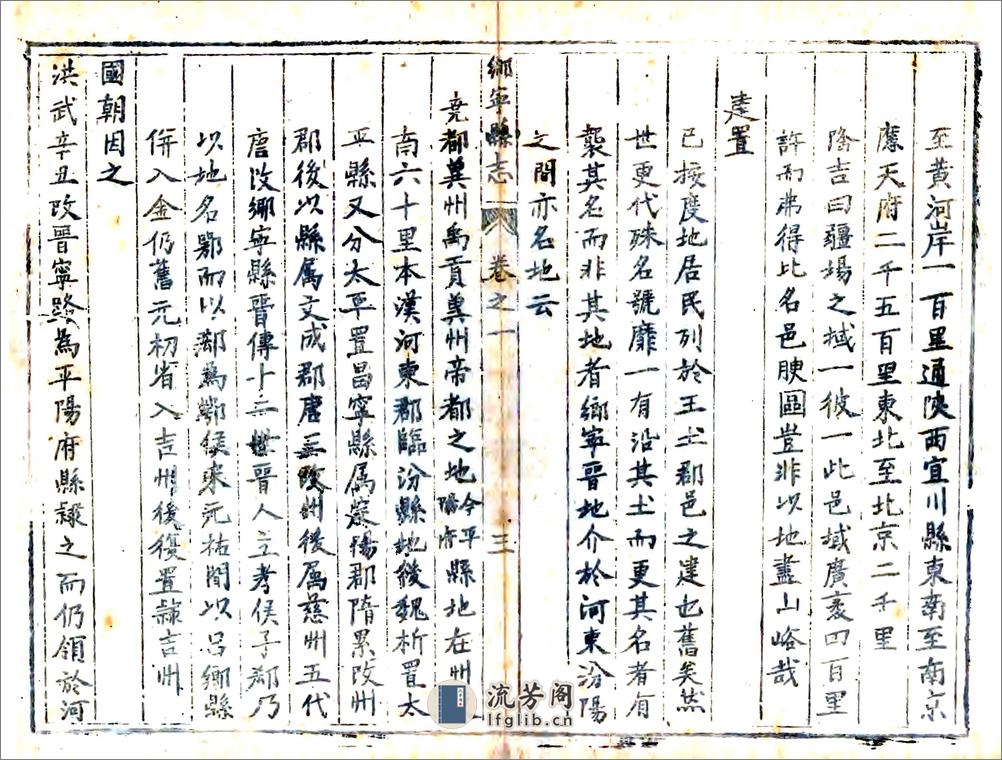 至黃河岸一百里通陝西宜川縣東南至南京
應天府二千五百里東北至北京二千里
隂吉曰疆場之棫一彼一此邑域廣袤四百里
許而弗得比名邑腴區豈非以地盡山峪哉
建置
已按度地居民列於王土郡邑之建也舊矣然
世更代殊名號靡一有沿其土而更其名者有
襲其名而非其地者鄉寧晉地介於河東汾陽
之間亦名地云
鄉寧縣志 卷之一 三
尭都兾州禹貢兾州帝都之地今平陽府縣地在州
南六十里本漢河東郡臨汾縣地後魏析置太
平縣又分太平置昌寧縣属定陽郡隋累改州
郡後以縣属文成郡唐三改州後属慈州五代
唐改鄉寧縣晉傳十二世晉人立孝侯子郄乃
以地名鄂而以郄為鄂侯宋元祐間以呂鄉縣
併入金仍舊元初省入吉州後復置隷吉州
國朝因之
洪武辛丑改晉寧路為平陽府縣隷之而仍領於河
流芳阁
lfglib.cn